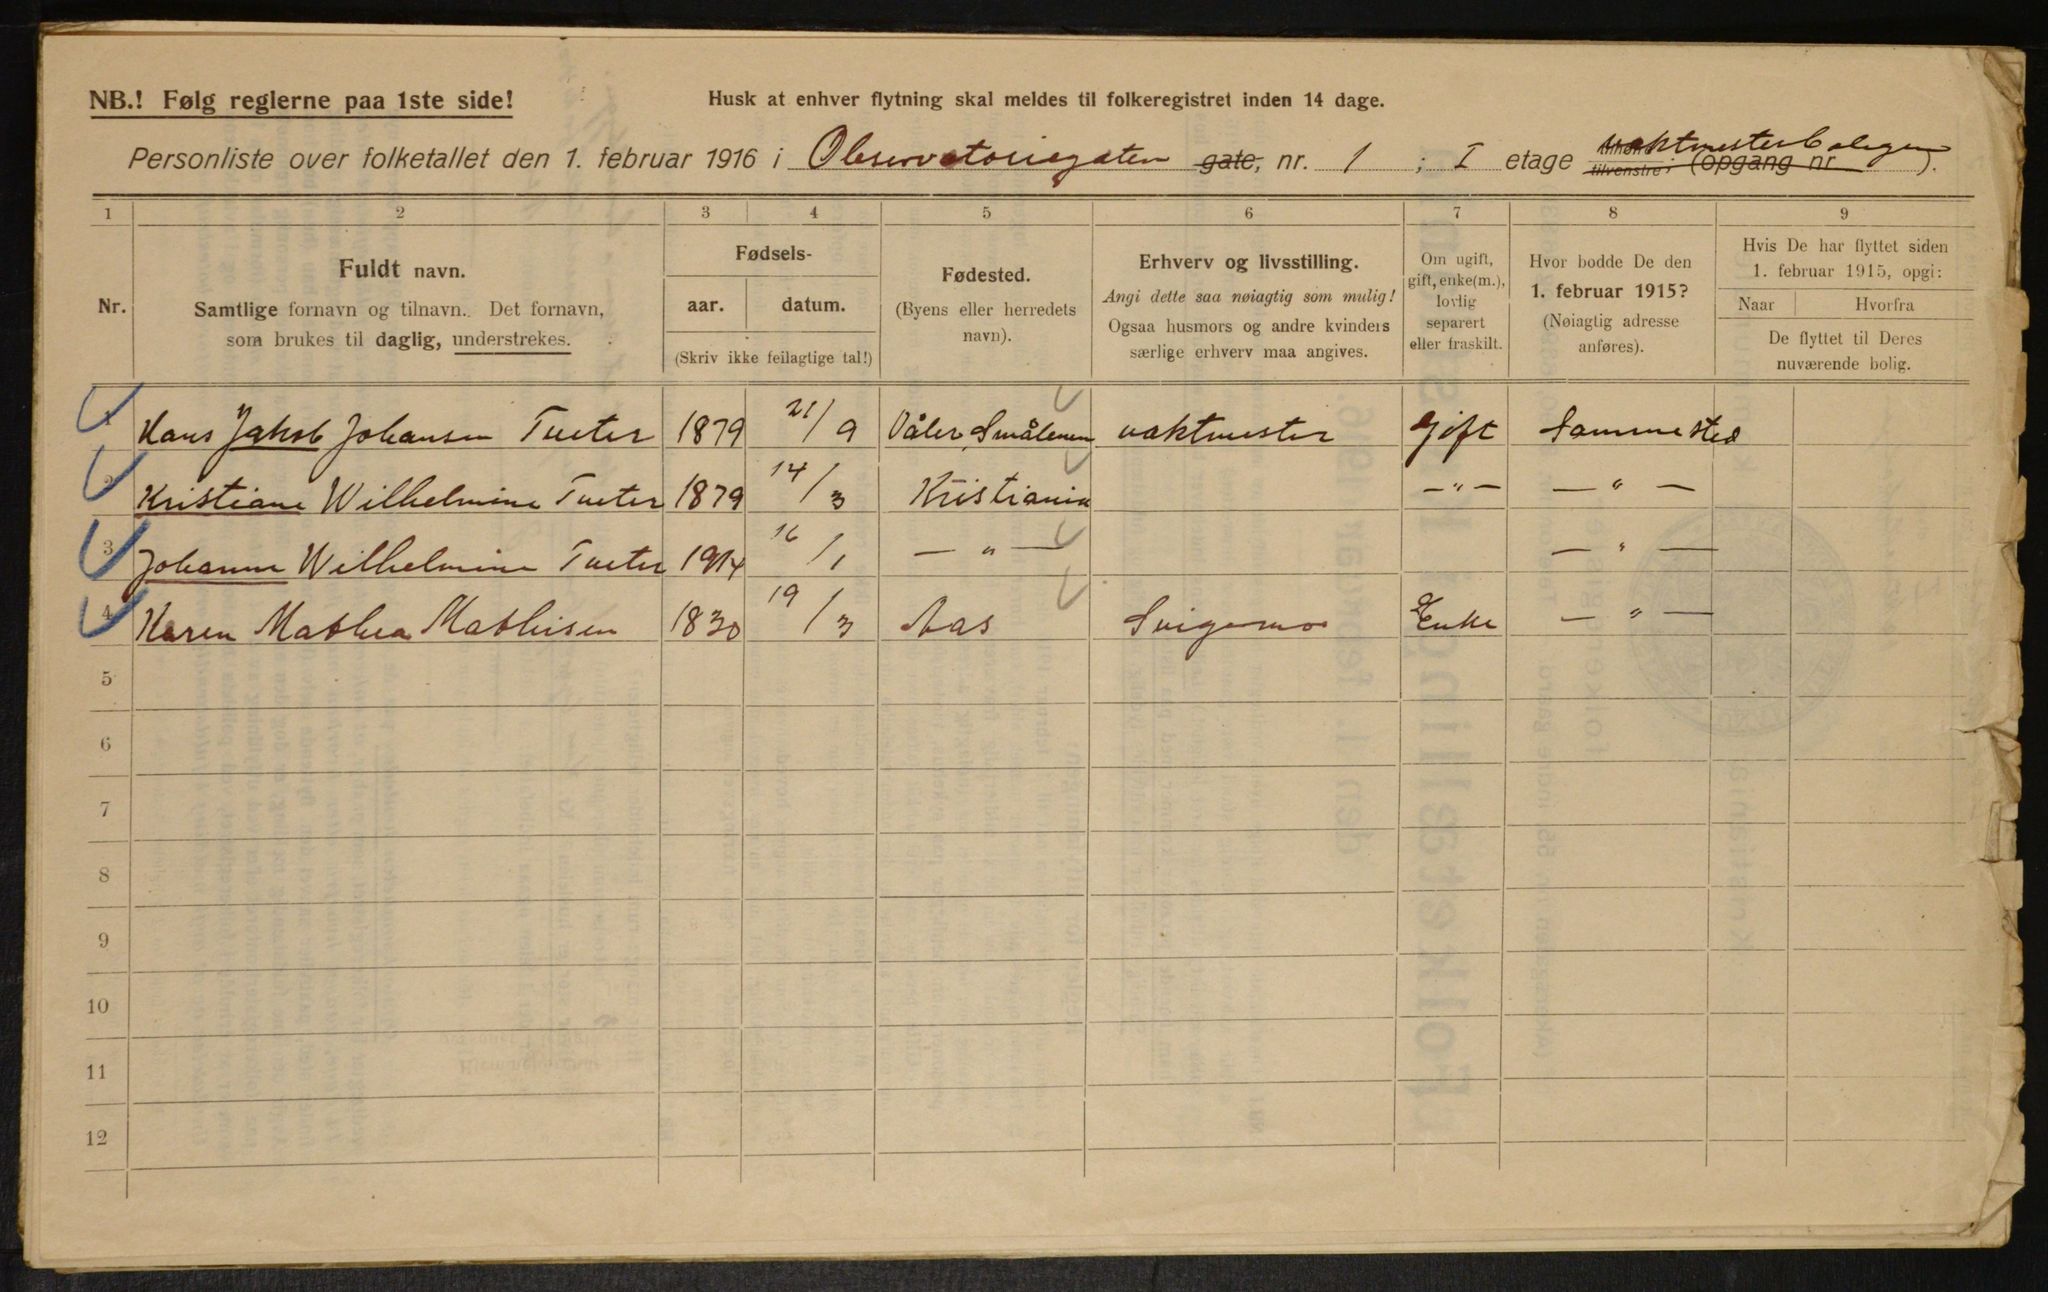 NB.! Følg reglerne paa 1ste side!
Husk at enhver flytning skal meldes til folkeregistret inden 14 dage.
Personliste over folketallet den 1. februar 1916 i Observatoriegaten gate, nr. 1 ; I etage vaktmesterboligen tilvenstre; (opgang nr ).
1 2 3 4 5 6 7 8 9
Nr.
Fuldt navn.
Samtlige fornavn og tilnavn. Det fornavn,
som brukes til daglig, understrekes.
Fødsels-
aar. datum.
(Skriv ikke feilagtige tal!)
Fødested.
(Byens eller herredets
navn).
Erhverv og livsstilling.
Angi dette saa nøiagtig som mulig!
Ogsaa husmors og andre kvinders
særlige erhverv maa angives.
Om ugift,
gift, enke(m.),
lovlig
separert
eller fraskilt.
Hvor bodde De den
1. februar 1915?
(Nøiagtig adresse
anføres).
Hvis De har flyttet siden
1. februar 1915, opgi:
Naar Hvorfra
De flyttet til Deres
nuværende bolig.
1 Hans Jakob Johansen Tveter 1879 21/9 Våler Smålenen vaktmester Gift Sammested
2 Kristiane Wilhelmine Tveter 1879 14/3 Kristiania — " — — " —
3 Johanne Wilhelmine Tveter 1914 16/1 — " — — " —
4 Karen Mathea Mathisen 1830 19/3 Aas Svigermor Enke — " —
5
6
7
8
9
10
11
12